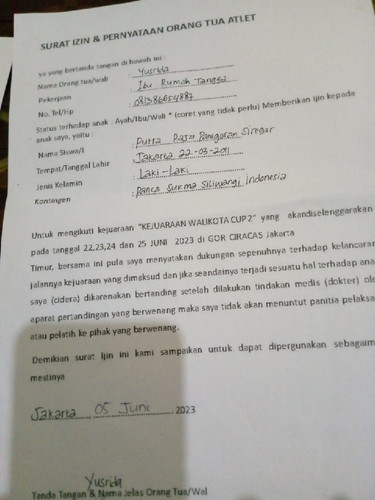 SURAT IZIN & PERNYATAAN ORANG TUA ATLET
ya yang bertanda tangan di bawah ini :
Nama Orang tua/wali : Yusrida
Pekerjaan : Ibu Rumah Tangga
No. Tel/Hp : 081386654887
Status terhadap anak : Ayah/Ibu/Wali * (coret yang tidak perlu) Memberikan Ijin kepada
anak saya, yaitu :
Nama Siswa/i : Putra Raja Panigoran Siregar
Tempat/Tanggal Lahir : Jakarta 22-03-2011
Jenis Kelamin : Laki-Laki
Kontingen : Panca Sukma Siliwangi Indonesia
Untuk mengikuti kejuaraan "KEJUARAAN WALIKOTA CUP 2" yang akandiselenggarakan
pada tanggal 22,23,24 dan 25 JUNI 2023 di GOR CIRACAS Jakarta
Timur, bersama ini pula saya menyatakan dukungan sepenuhnya terhadap kelancaran
jalannya kejuaraan yang dimaksud dan jika seandainya terjadi sesuatu hal terhadap ana
saya (cidera) dikarenakan bertanding setelah dilakukan tindakan medis (dokter) ole
aparat pertandingan yang berwenang maka saya tidak akan menuntut panitia pelaksa
atau pelatih ke pihak yang berwenang.
Demikian surat Ijin ini kami sampaikan untuk dapat dipergunakan sebagaim
mestinya
Jakarta, 05 Juni 2023
Yusrida
Tanda Tangan & Nama Jelas Orang Tua/Wal